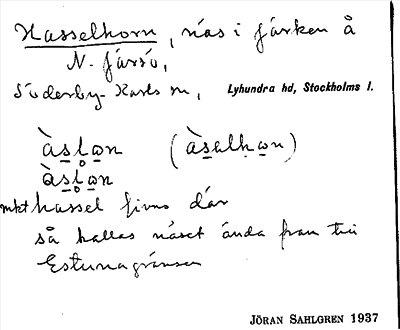 Hasselhorn, näs i fjärken å
N. fjärsö,
Söderby-Karls sn, Lyhundra hd, Stockholms l.
àsl̥ω̱n (àsalhω̱n)
àsl̥ω̱n
mkt hassel finns där
så kallas näset ända fram till
Estunagränsen
JÖRAN SAHLGREN 1937